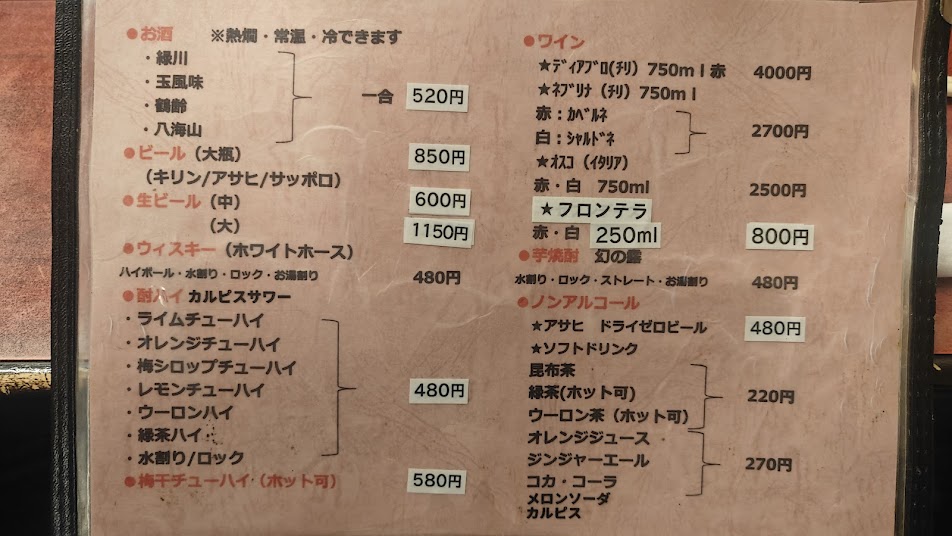 ●お酒　※熱燗・常温・冷できます
・緑川
・玉風味
・鶴齢
・八海山
一合　520円
●ビール（大瓶）　850円
（キリン/アサヒ/サッポロ）
●生ビール（中）　600円
（大）　1150円
●ウィスキー（ホワイトホース）
ハイボール・水割り・ロック・お湯割り　480円
●酎ハイ カルピスサワー
・ライムチューハイ
・オレンジチューハイ
・梅シロップチューハイ
・レモンチューハイ　480円
・ウーロンハイ
・緑茶ハイ
・水割り/ロック
●梅干チューハイ（ホット可）　580円
●ワイン
★ﾃﾞｨｱﾌﾞﾛ(ﾁﾘ) 750ml 赤　4000円
★ﾈﾌﾞﾘﾅ（ﾁﾘ）750ml
赤：ｶﾍﾞﾙﾈ
白：ｼｬﾙﾄﾞﾈ
2700円
★ｵｽｺ（ｲﾀﾘｱ）
赤・白　750ml　2500円
★フロンテラ
赤・白　250ml　800円
●芋焼酎　幻の露
水割り・ロック・ストレート・お湯割り　480円
●ノンアルコール
★アサヒ　ドライゼロビール　480円
★ソフトドリンク
昆布茶
緑茶(ホット可)　220円
ウーロン茶（ホット可）
オレンジジュース
ジンジャーエール　270円
コカ・コーラ
メロンソーダ
カルピス